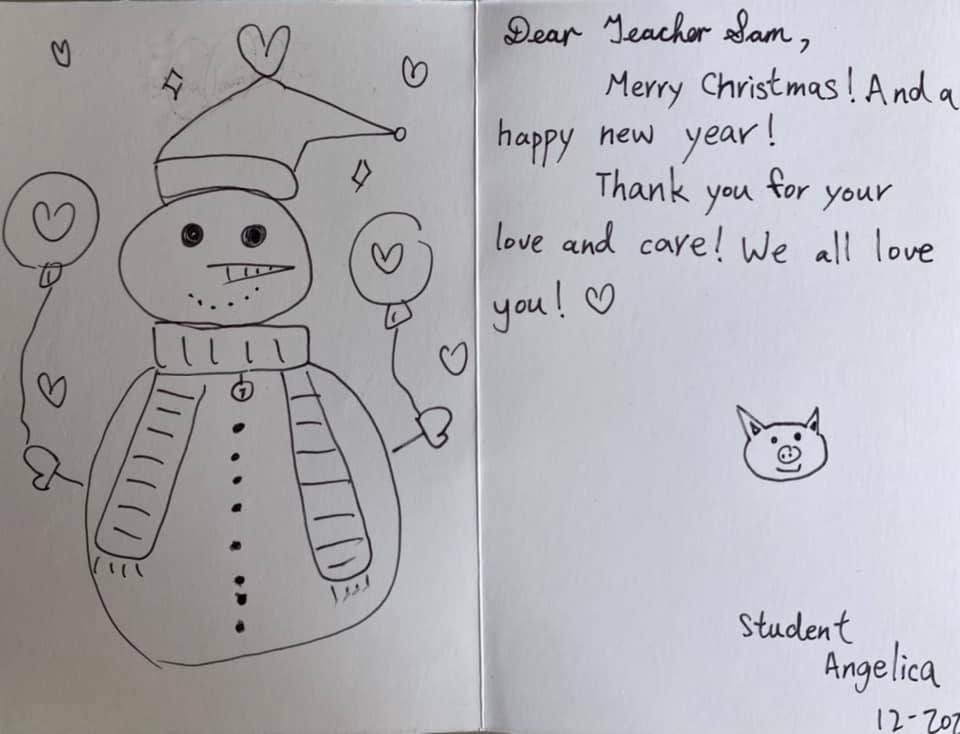 Dear Teacher Sam,
Merry Christmas! And a
happy new year!
Thank you for your
love and care! We all love
you! ♡
Student
Angelica
12-202